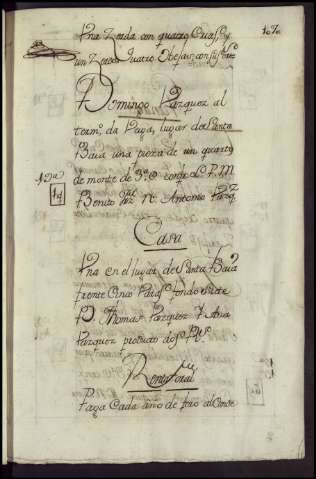 107
Una Zerda con quatro Crias, y
un Zerdo quatro Obejas con sus
Domingo Vazquez al
term.º da Vaga, lugar de Santa
Baia una pieza de un quarto
de monte de 3.ª
Benito N. Antonio Vazq.z
19
Casa
Una en el lugar de Santa Baia
frente Cinco Varas fondo Siete
D. Thomas Vazquez Y. Ana
Vazquez producto dos R.s V.n
Renta foral
Paga Cada año de foro al Conde